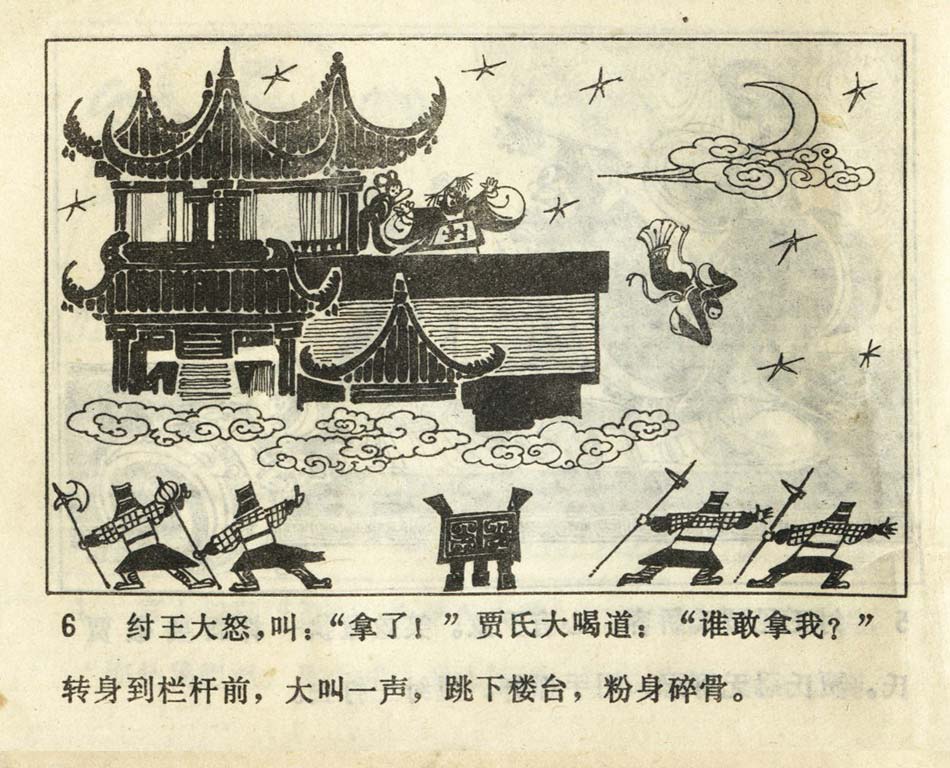 6 纣王大怒，叫：“拿了！”贾氏大喝道：“谁敢拿我？”
转身到栏杆前，大叫一声，跳下楼台，粉身碎骨。